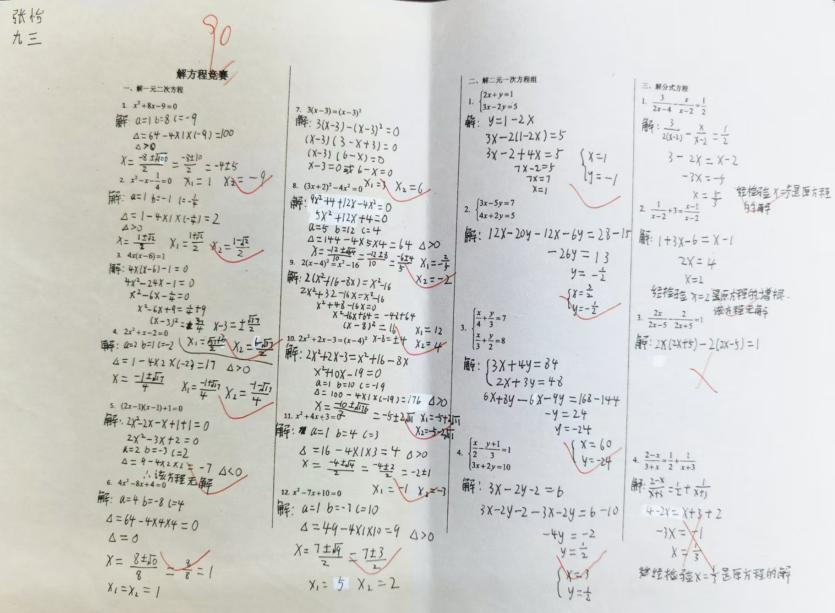 张怡
九三
90
解方程竞赛
一、解一元二次方程
1. x²+8x-9=0
解: a=1 b=8 c=-9
Δ=64-4×1×(-9)=100
Δ>0
X=(-8±√100)/2=(-8±10)/2=-4±5
X₁=1 X₂=-9
2. x²-x-1/4=0
解: a=1 b=-1 c=-1/4
Δ=1-4×1×(-1/4)=2
Δ>0
X=(1±√2)/2 X₁=(1+√2)/2 X₂=(1-√2)/2
3. 4x(x-6)=1
解: 4X(X-6)-1=0
4X²-24X-1=0
X²-6X-1/4=0
X²-6X+9=1/4+9
X-3=±√37/2
4. 2x²+x-2=0
解: a=2 b=1 c=-2
Δ=1-4×2×(-2)=17 Δ>0
X=(-1±√17)/4 X₁=(-1+√17)/4 X₂=(-1-√17)/4
5. (2x-1)(x-1)+1=0
解: 2X²-2X-X+1+1=0
2X²-3X+2=0
a=2 b=-3 c=2
Δ=9-4×2×2=-7 Δ<0
∴该方程无解
6. 4x²-8x+4=0
解: a=4 b=-8 c=4
Δ=64-4×4×4=0
Δ=0
X=(8±√0)/8=8/8=1
X₁=X₂=1
7. 3(x-3)=(x-3)²
解: 3(X-3)-(X-3)²=0
(X-3)(3-X+3)=0
(X-3)(6-X)=0
X-3=0或6-X=0
X₁=3 X₂=6
8. (3x+2)²-4x²=0
解: 9X²+4+12X-4X²=0
5X²+12X+4=0
a=5 b=12 c=4
Δ=144-4×5×4=64 Δ>0
X=(-12±√64)/10=(-12±8)/10=(-6±4)/5 X₁=-2/5
X₂=-2
9. 2(x-4)²=x²-16
解: 2(X²+16-8X)=X²-16
2X²+32-16X=X²-16
X²+48-16X=0
X²-16X+64=-48+64
(X-8)²=16
X-8=±4
X₁=12
X₂=4
10. 2x²+2x-3=(x-4)²
解: 2X²+2X-3=X²+16-8X
X²+10X-19=0
a=1 b=10 c=-19
Δ=100-4×1×(-19)=176 Δ>0
X=(-10±√176)/2=-5±2√11 X₁=-5+2√11
X₂=-5-2√11
11. x²+4x+3=0
解: a=1 b=4 c=3
Δ=16-4×1×3=4 Δ>0
X=(-4±√4)/2=(-4±2)/2=-2±1
X₁=-1 X₂=-3
12. x²-7x+10=0
解: a=1 b=-7 c=10
Δ=49-4×1×10=9 Δ>0
X=(7±√9)/2=(7±3)/2
X₁=5 X₂=2
二、解二元一次方程组
1. {2x+y=1
3x-2y=5
解: y=1-2X
3X-2(1-2X)=5
3X-2+4X=5
7X-2=5
7X=7
X=1
{X=1
y=-1
2. {3x-5y=7
4x+2y=5
解: 12X-20y-12X-6y=28-15
-26y=13
y=-1/2
{X=3/2
y=-1/2
3. {x/4+y/3=7
x/3+y/2=8
解: {3X+4y=84
2X+3y=48
6X+8y-6X-9y=168-144
-y=24
y=-24
{X=60
y=-24
4. {x/2-(y+1)/3=1
3x+2y=10
解: 3X-2y-2=6
3X-2y-2-3X-2y=6-10
-4y=-2
y=1/2
{X=3
y=1/2
三、解分式方程
1. 3/(2x-4)-x/(x-2)=1/2
解: 3/(2(X-2))-X/(X-2)=1/2
3-2X=X-2
-3X=-5
X=5/3
经检验X=5/3是原方程
的解
2. 1/(x-2)+3=(x-1)/(x-2)
解: 1+3X-6=X-1
2X=4
X=2
经检验X=2是原方程的增根.
该方程无解
3. 2x/(2x-5)-2/(2x+5)=1
解: 2X(2X+5)-2(2X-5)=1
4. (2-x)/(3+x)=1/2+1/(x+3)
解: (2-X)/(X+3)=1/2+1/(X+3)
4-2X=X+3+2
-3X=-1
X=1/3
经检验X=1/3是原方程的解